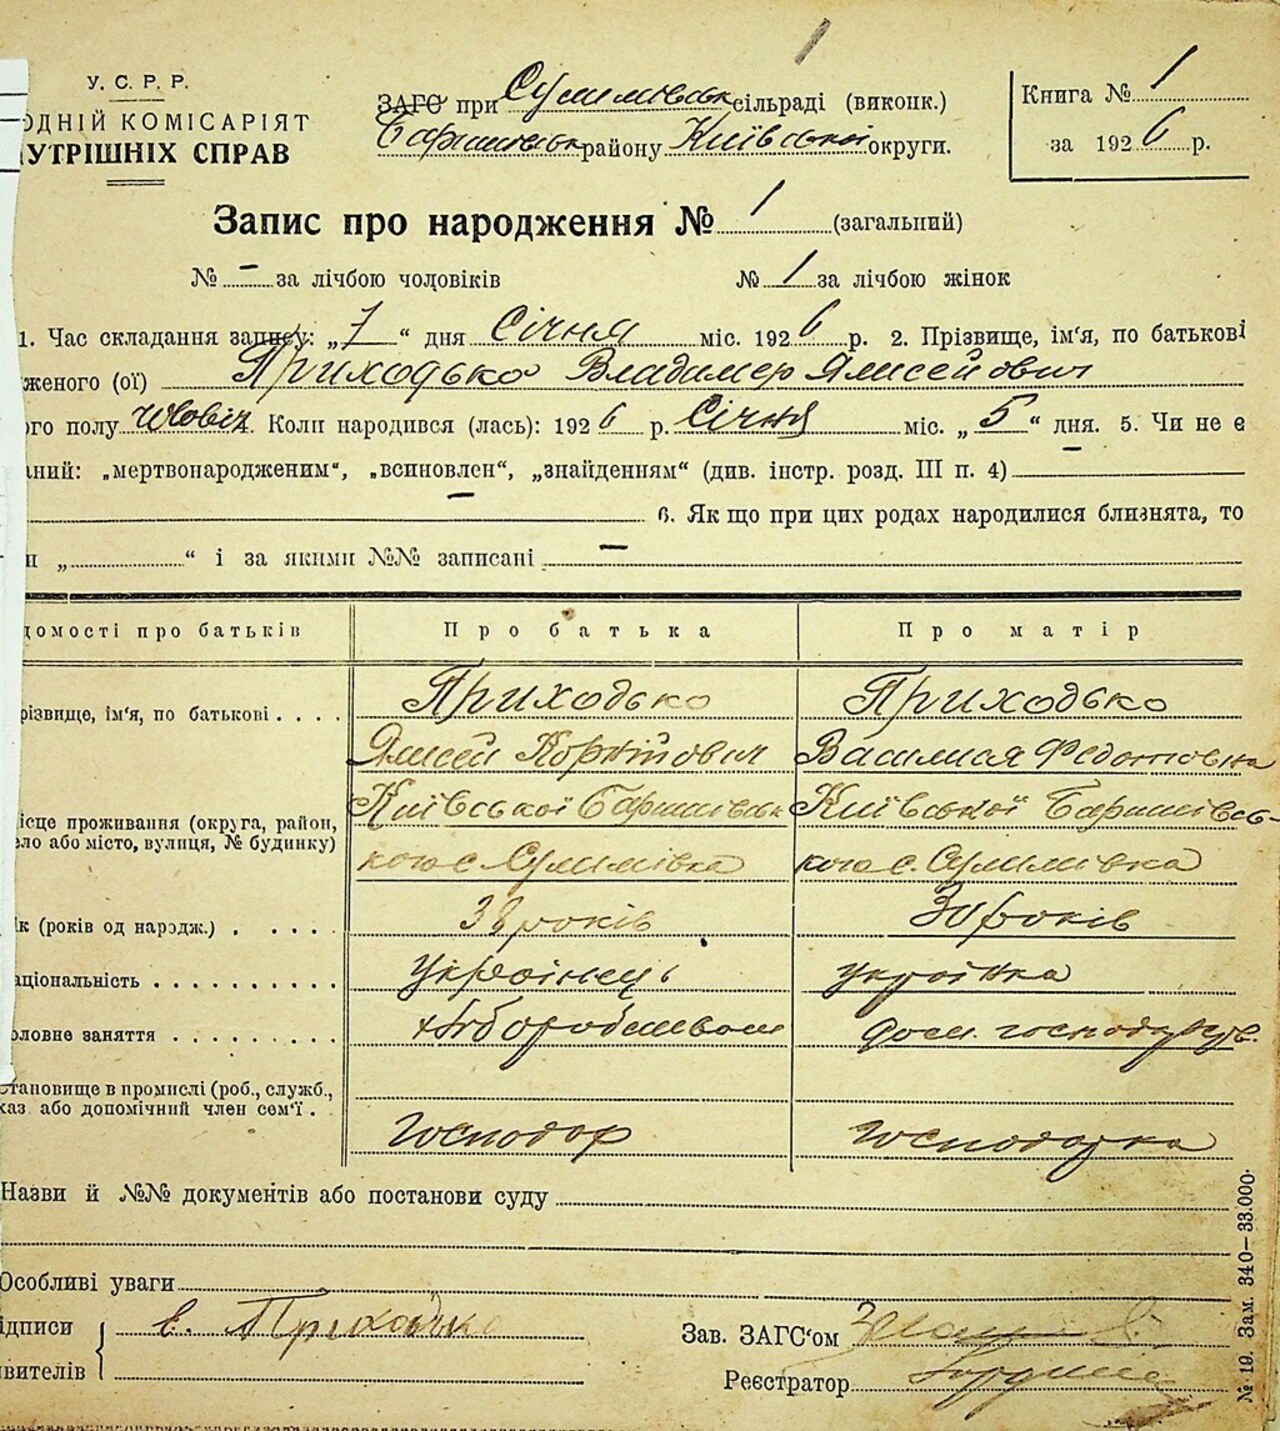 У. С. Р. Р.
ОДНІЙ КОМІСАРІЯТ
УТРІШНІХ СПРАВ
ЗАГС при Сулимівськ сільраді (виконк.)
Баришівськ району Київської округи.
Книга № 1
за 1926 р.
Запис про народження № 1 (загальний)
№ – за лічбою чоловіків № 1 за лічбою жінок
1. Час складання запису: „7“ дня Січня міс. 1926 р. 2. Прізвище, ім'я, по батькові
женого (ої) Приходько Владимер Ялисейович
ого полу чловіч. Коли народився (лась): 1926 р. Січня міс. „5“ дня. 5. Чи не є
аний: „мертвонародженим“, „всиновлен“, „знайденням“ (див. інстр. розд. III п. 4) –
– 6. Як що при цих родах народилися близнята, то
п „ “ і за якими №№ записані –
домості про батьків Про батька Про матір
різвище, ім'я, по батькові . . . . Приходько Приходько
Ялисей Корнійович Василися Федотовна
ісце проживання (округа, район, Київської Баришівськ Київської Баришівсь-
ело або місто, вулиця, № будинку)
кого с. Сулимівка кого с. Сулимівка
ік (років од нарэдж.) . . . . . 38 років 30 років
аціональність . . . . . . . . . . Українець українка
оловне заняття . . . . . . . . . хліборобством дом. господарув.
тановище в промислі (роб., служб.,
каз або допомічний член сем'ї . .
Господар господарка
Назви й №№ документів або постанови суду
Особливі уваги
ідписи
явителів
є. Приходько
Зав. ЗАГС'ом
Реєстратор
№ 19. Зам. 340—33.000.